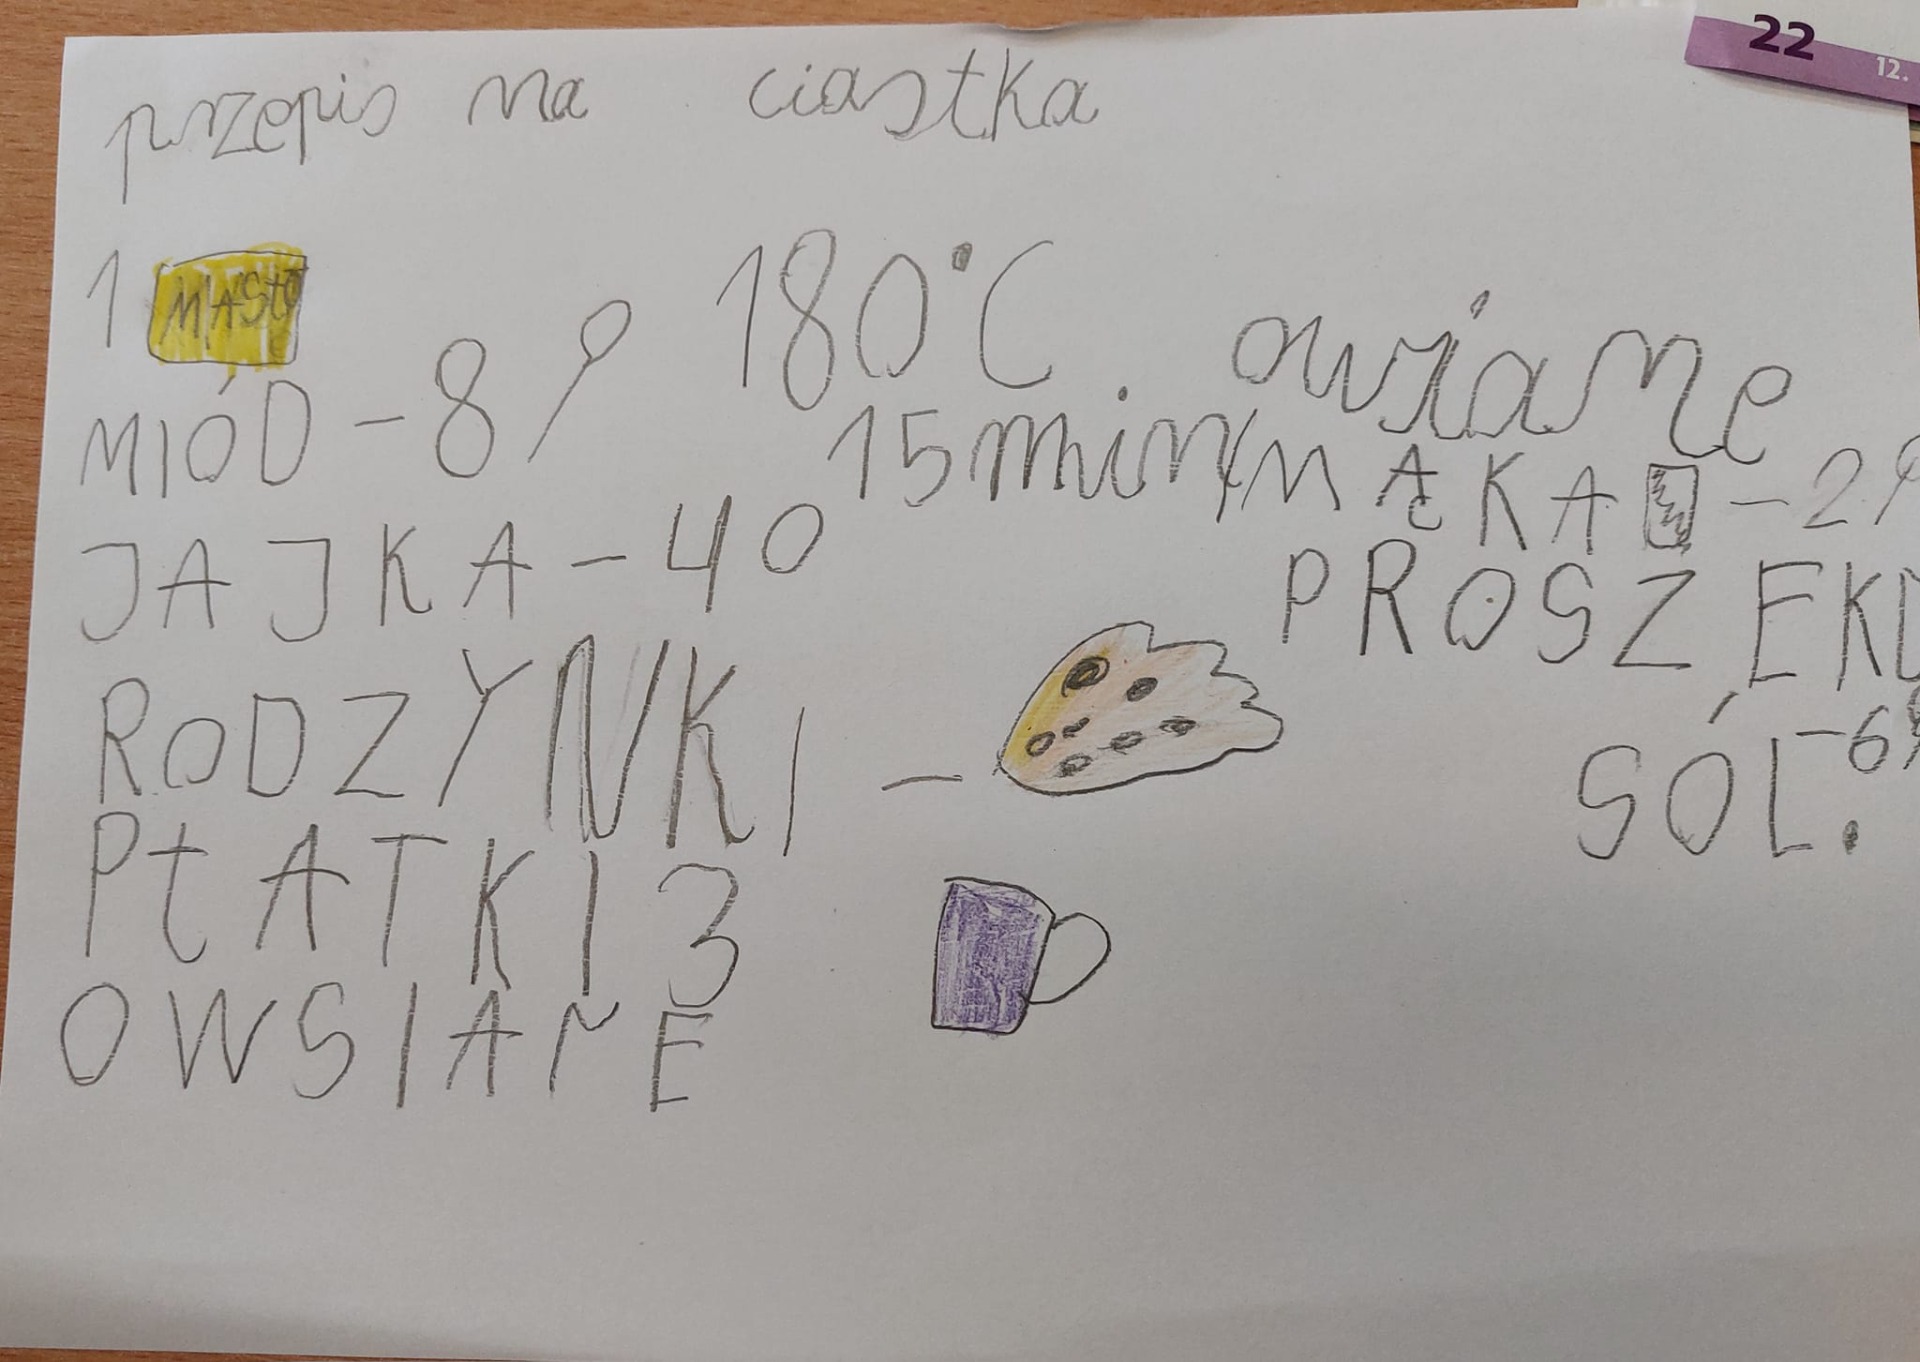 22
12.
przepis na ciastka
1 MASŁO
180°C
MIÓD - 8
15 min
JAJKA - 4
RODZYNKI -
PŁATKI 3
OWSIANE
MĄKA - 2
PROSZEK
SÓL - 6